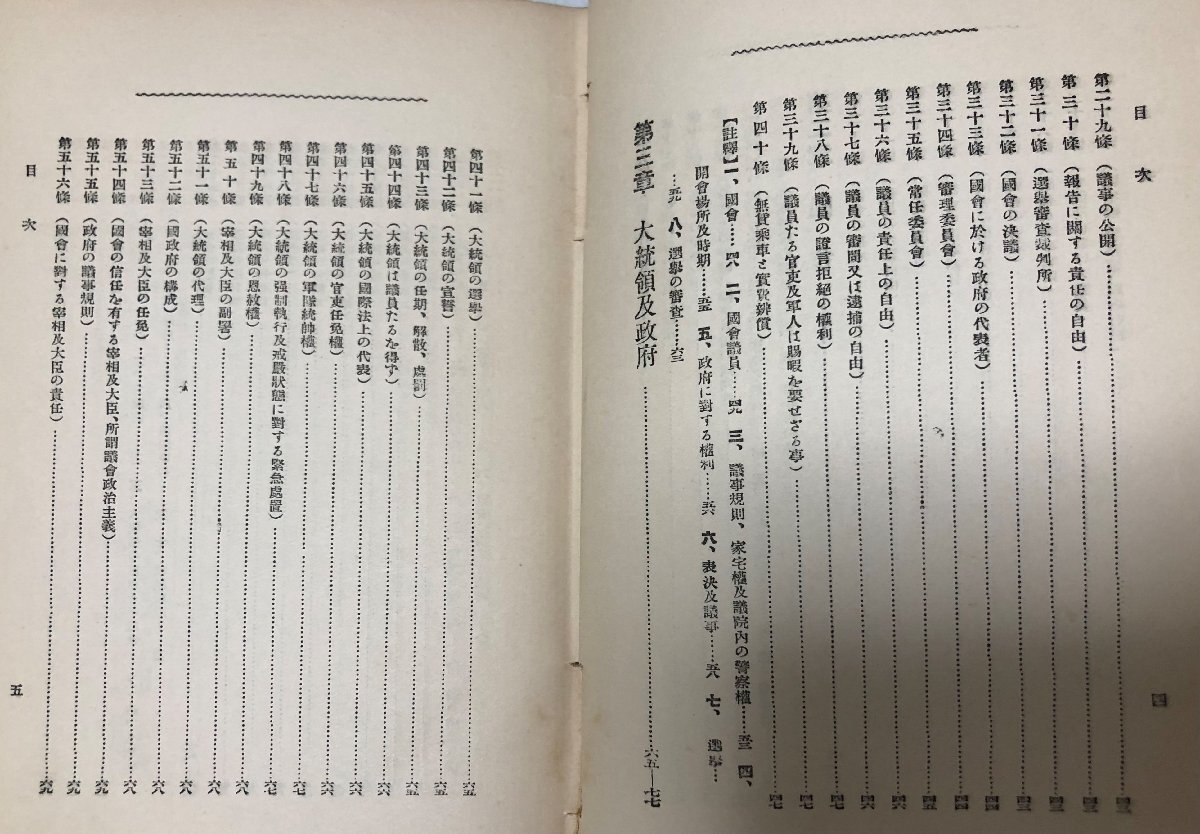 目次
第二十九條（議事の公開）……四三
第三十條（報告に關する責任の自由）……四三
第三十一條（選擧審査裁判所）……四三
第三十二條（國會の決議）……四三
第三十三條（國會に於ける政府の代表者）……四四
第三十四條（審理委員會）……四四
第三十五條（常任委員會）……四五
第三十六條（議員の責任上の自由）……四六
第三十七條（議員の審問又は逮捕の自由）……四六
第三十八條（議員の證言拒絶の權利）……四七
第三十九條（議員たる官吏及軍人は賜暇を要せざる事）……四七
第四十條（無賃乘車と實費辨償）……四七
【註釋】一、國會……四八 二、國會議員……四九 三、議事規則、家宅權及議院內の警察權……五三 四、
開會場所及時期……五五 五、政府に對する權利……五六 六、表決及議事……五八 七、選擧…
…五九 八、選擧の審査……六三
第三章 大統領及政府……六五―七七
四
第四十一條（大統領の選擧）……六五
第四十二條（大統領の宣誓）……六五
第四十三條（大統領の任期、解散、處罰）……六五
第四十四條（大統領は議員たるを得ず）……六六
第四十五條（大統領の國際法上の代表）……六六
第四十六條（大統領の官吏任免權）……六六
第四十七條（大統領の軍隊統帥權）……六七
第四十八條（大統領の强制執行及戒嚴狀態に對する緊急處置）……六七
第四十九條（大統領の恩赦權）……六七
第五十條（宰相及大臣の副署）……六八
第五十一條（大統領の代理）……六八
第五十二條（國政府の構成）……六八
第五十三條（宰相及大臣の任免）……六八
第五十四條（國會の信任を有する宰相及大臣、所謂議會政治主義）……六八
第五十五條（政府の議事規則）……六九
第五十六條（國會に對する宰相及大臣の責任）……六九
目次
五